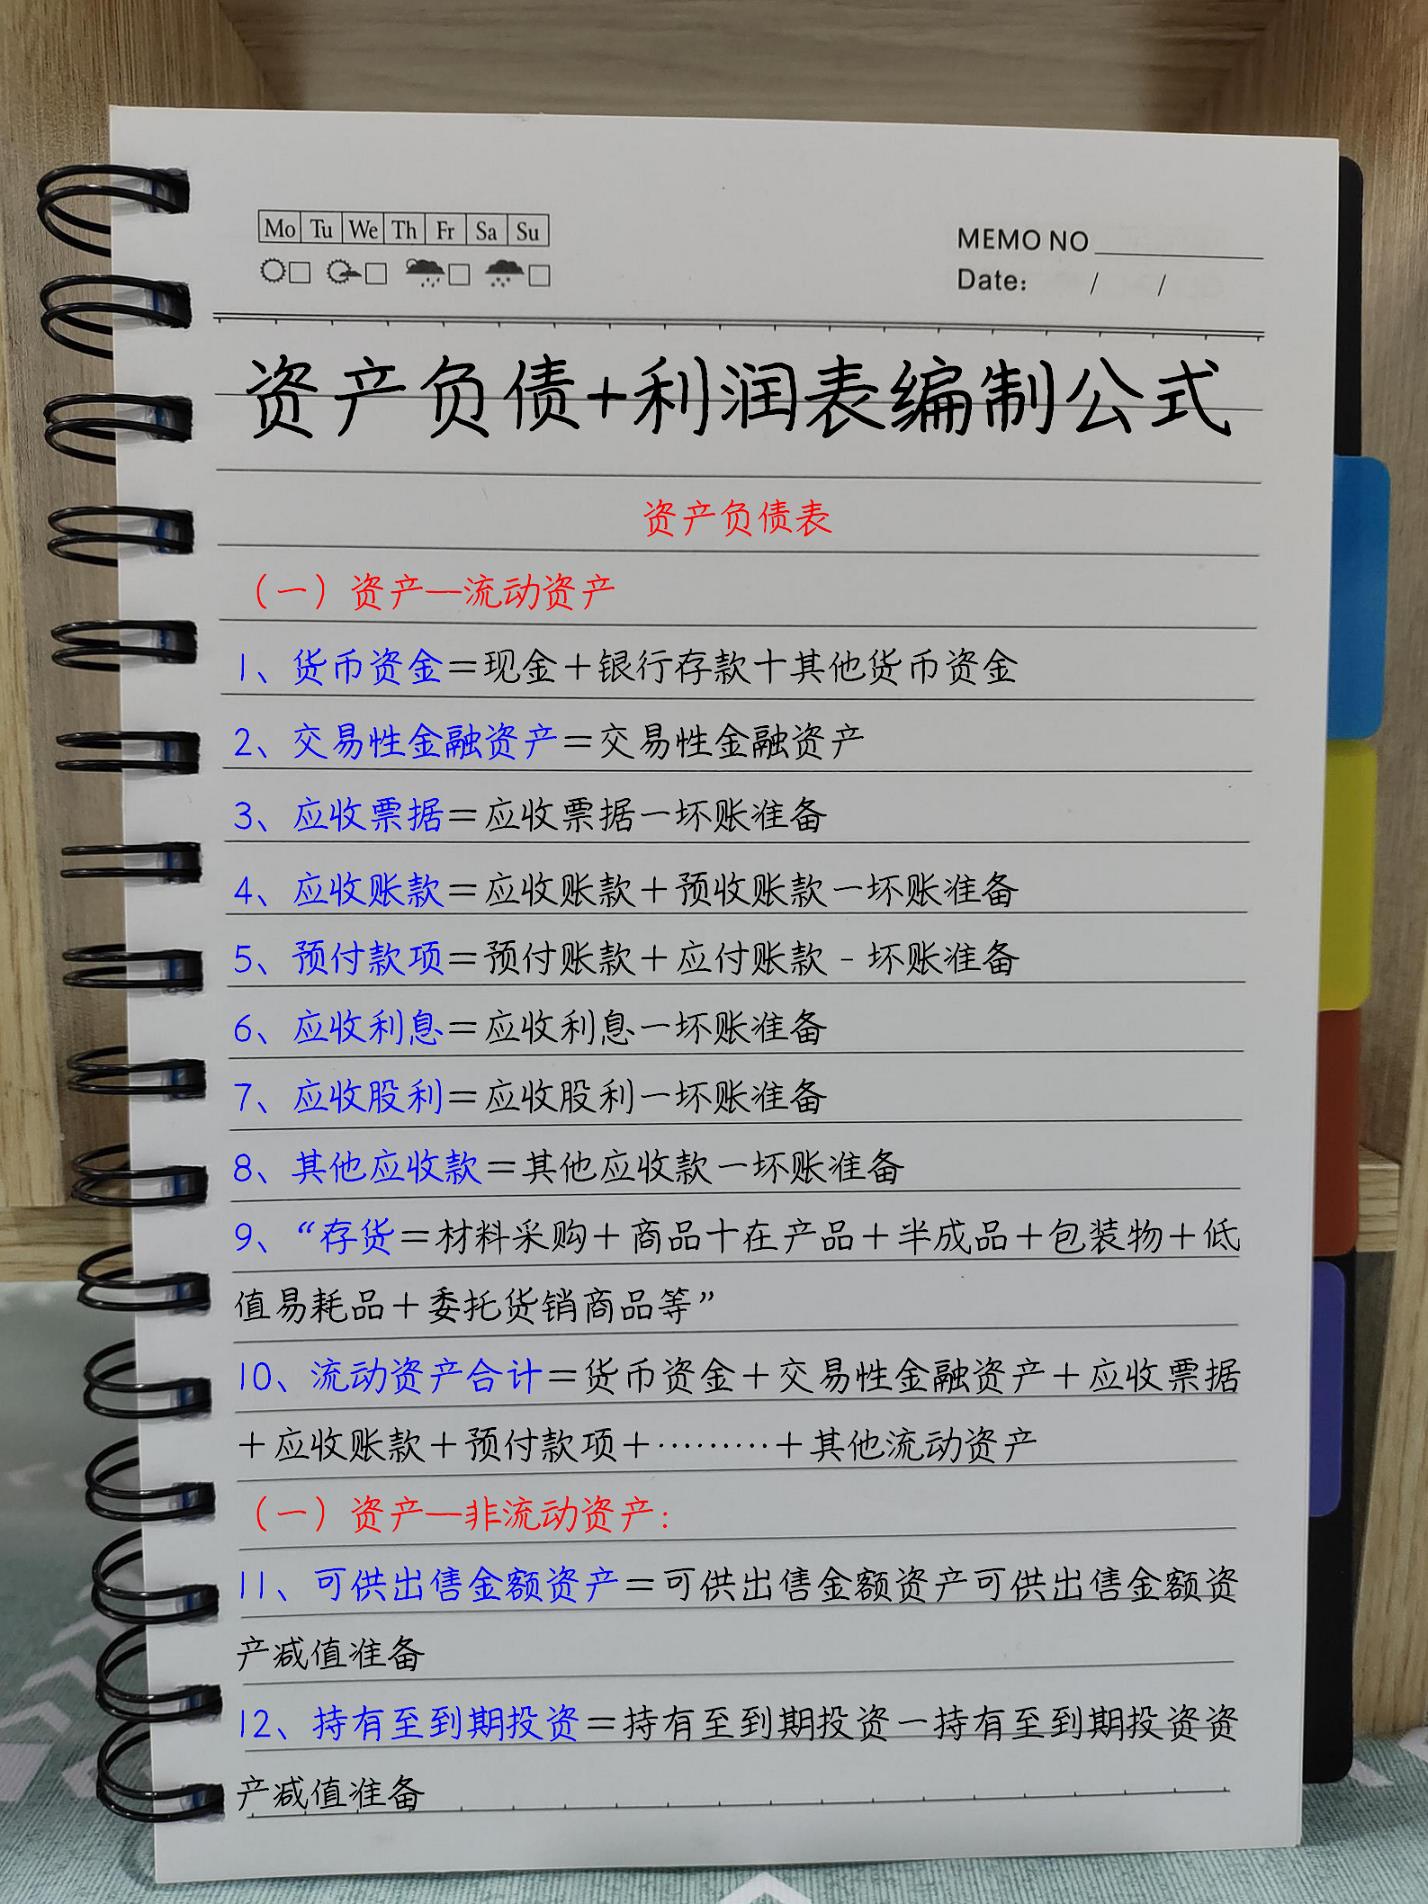 Mo Tu We Th Fr Sa Su
MEMO NO
Date: / /
资产负债+利润表编制公式
资产负债表
（一）资产—流动资产
1、货币资金＝现金＋银行存款十其他货币资金
2、交易性金融资产＝交易性金融资产
3、应收票据＝应收票据一坏账准备
4、应收账款＝应收账款＋预收账款一坏账准备
5、预付款项＝预付账款＋应付账款－坏账准备
6、应收利息＝应收利息一坏账准备
7、应收股利＝应收股利一坏账准备
8、其他应收款＝其他应收款一坏账准备
9、“存货＝材料采购＋商品十在产品＋半成品＋包装物＋低
值易耗品＋委托货销商品等”
10、流动资产合计＝货币资金＋交易性金融资产＋应收票据
＋应收账款＋预付款项＋………＋其他流动资产
（一）资产—非流动资产：
11、可供出售金额资产＝可供出售金额资产可供出售金额资
产减值准备
12、持有至到期投资＝持有至到期投资一持有至到期投资资
产减值准备